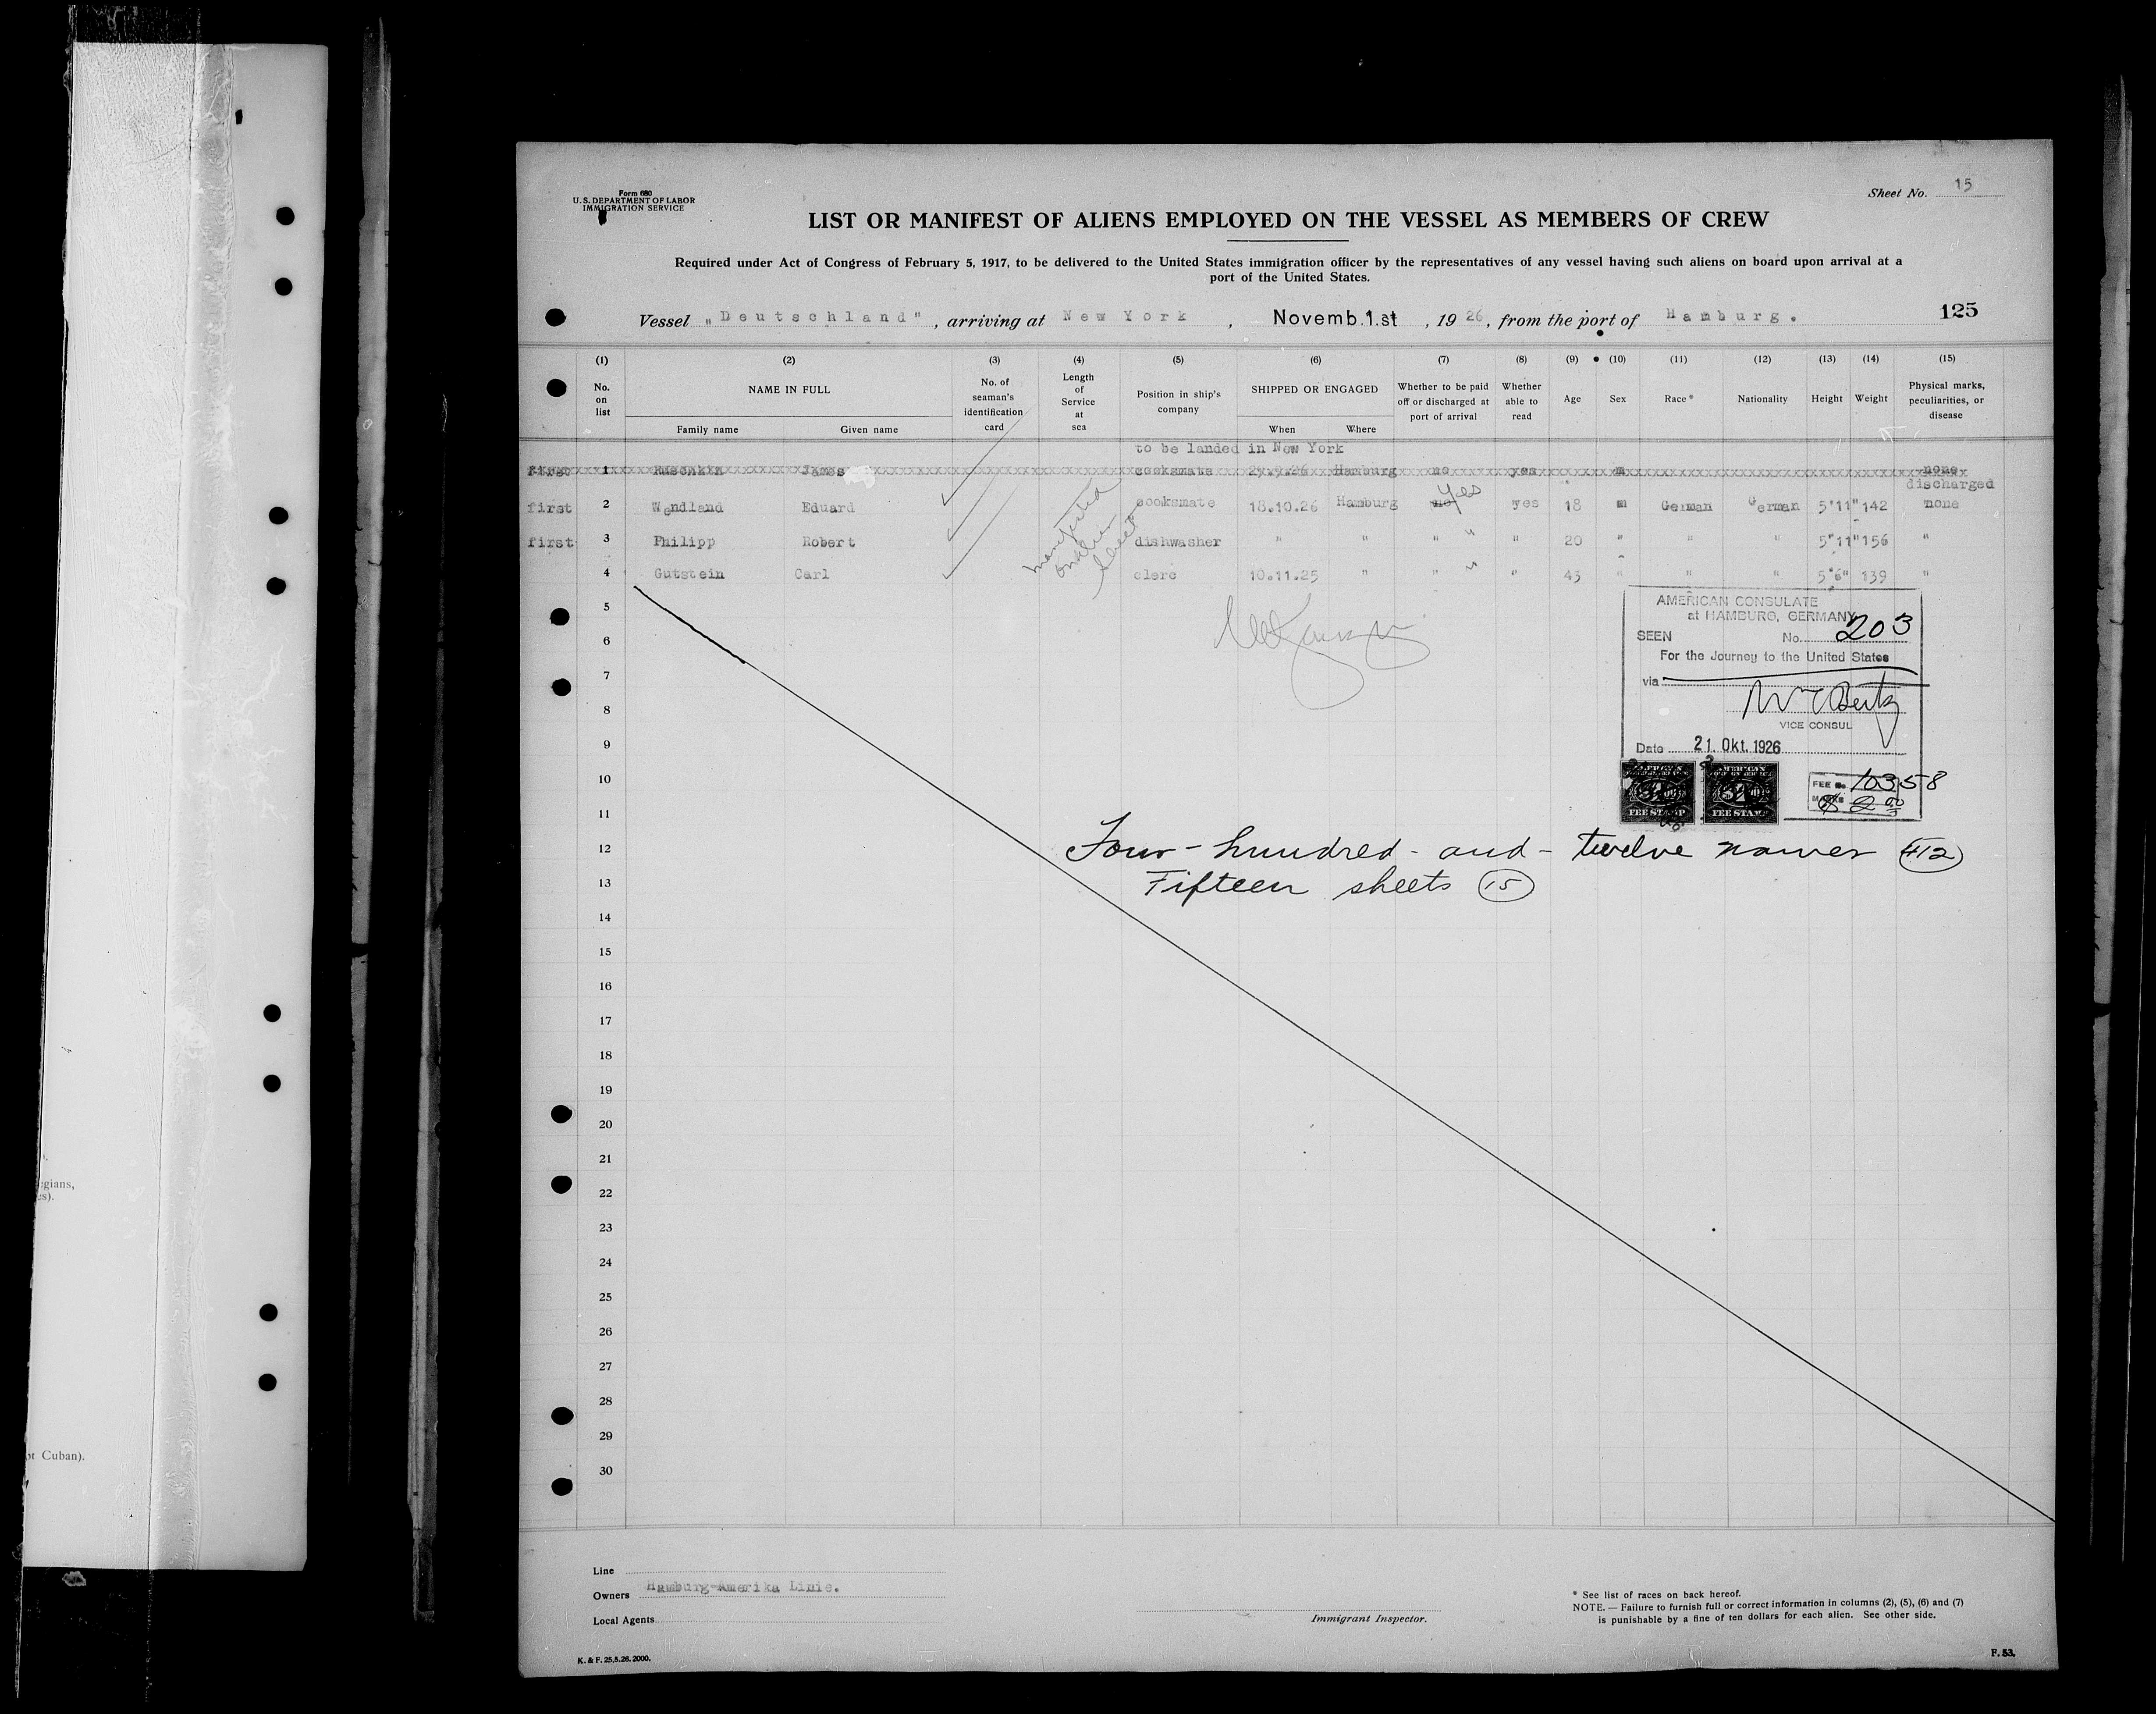 Form 680
U. S. DEPARTMENT OF LABOR
IMMIGRATION SERVICE
Sheet No. 15
LIST OR MANIFEST OF ALIENS EMPLOYED ON THE VESSEL AS MEMBERS OF CREW
Required under Act of Congress of February 5, 1917, to be delivered to the United States immigration officer by the representatives of any vessel having such aliens on board upon arrival at a
port of the United States.
Vessel „Deutschland", arriving at New York, Novemb.1.st, 1926, from the port of Hamburg.
125
(1) (2) (3) (4) (5) (6) (7) (8) (9) (10) (11) (12) (13) (14) (15)
No. on list
NAME IN FULL
Family name Given name
No. of seaman's identification card
Length of Service at sea
Position in ship's company
SHIPPED OR ENGAGED
When Where
Whether to be paid off or discharged at port of arrival
Whether able to read
Age
Sex
Race *
Nationality
Height
Weight
Physical marks, peculiarities, or disease
to be landed in New York
first 1 James cooksmate 29.9.26 Hamburg no yes m none
discharged
first 2 Wendland Eduard cooksmate 18.10.26 Hamburg no yes yes 18 m German German 5'11" 142 none
first 3 Philipp Robert dishwasher " " " " " 20 " " " 5"11" 156 "
4 Gutstein Carl clerc 10.11.25 " " " " 45 " " " 5"6" 139 "
manifested
sheet
5
6
7
8
9
10
11
12
13
14
15
16
17
18
19
20
21
22
23
24
25
26
27
28
29
30
AMERICAN CONSULATE
at HAMBURG, GERMANY
SEEN No. 203
For the Journey to the United States
via
VICE CONSUL
Date 21. Okt. 1926
FEE STAMP FEE STAMP
FEE No. 10358
$ 2 00
Four-hundred-and-twelve names (412)
Fifteen sheets (15)
Line
Owners Hamburg-Amerika Linie.
Local Agents
Immigrant Inspector.
* See list of races on back hereof.
NOTE.— Failure to furnish full or correct information in columns (2), (5), (6) and (7)
is punishable by a fine of ten dollars for each alien. See other side.
K. & F. 25.5.26. 2000.
F. 53.
Cuban).